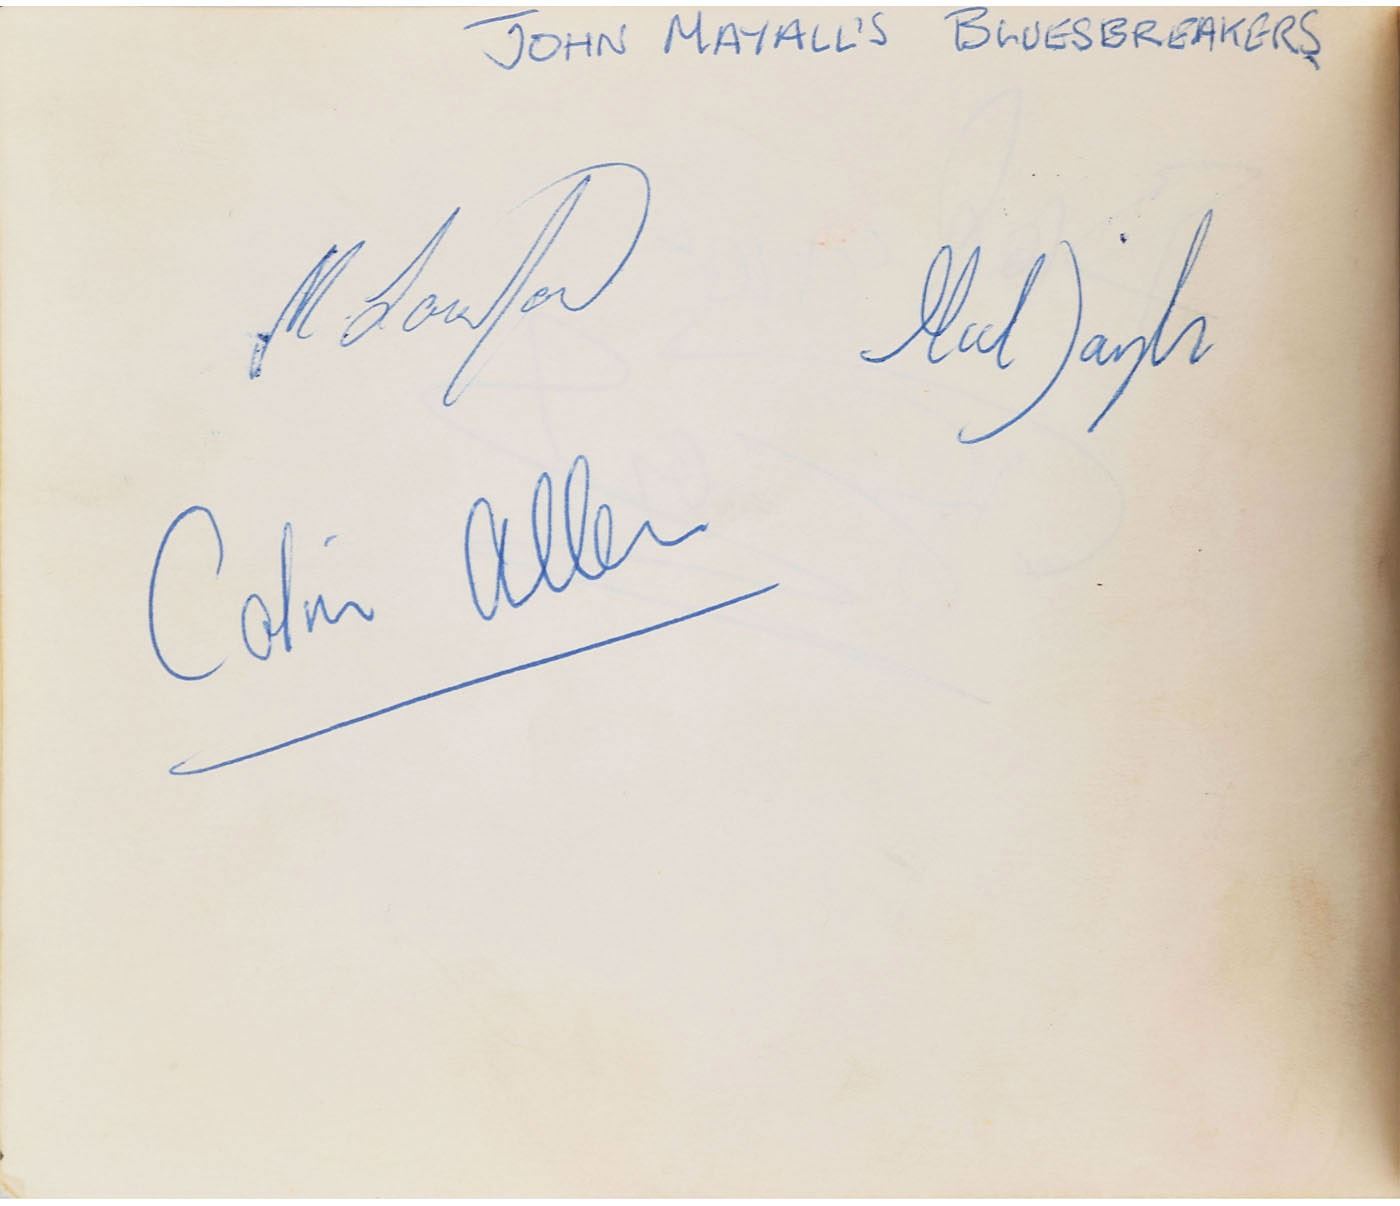 JOHN MAYALL'S BLUESBREAKERS
Mick Taylor
Colin Allen